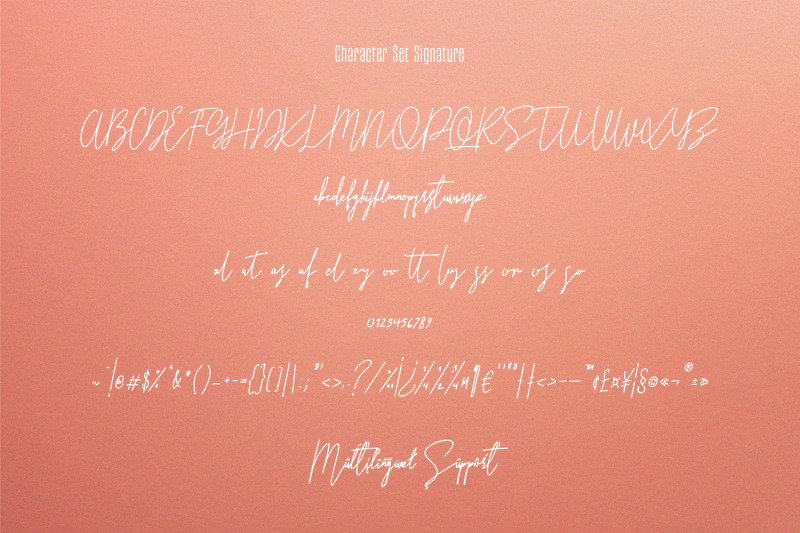 Character Set Signature
ABCDEFGHIJKLMNOPQRSTUVWXYZ
abcdefghijklmnopqrstuvwxyz
al at as af el ey oo tt ly ss or os so
0123456789
~`!@#$%^&*()_+-={}[]|\:;"'<>,.?/‰¡¿¼½¾¶€‘’“”†‡<>–—™¢£¤¥¦§©«¬®±»
Mûltĩlïñğüæł Şûppôřť